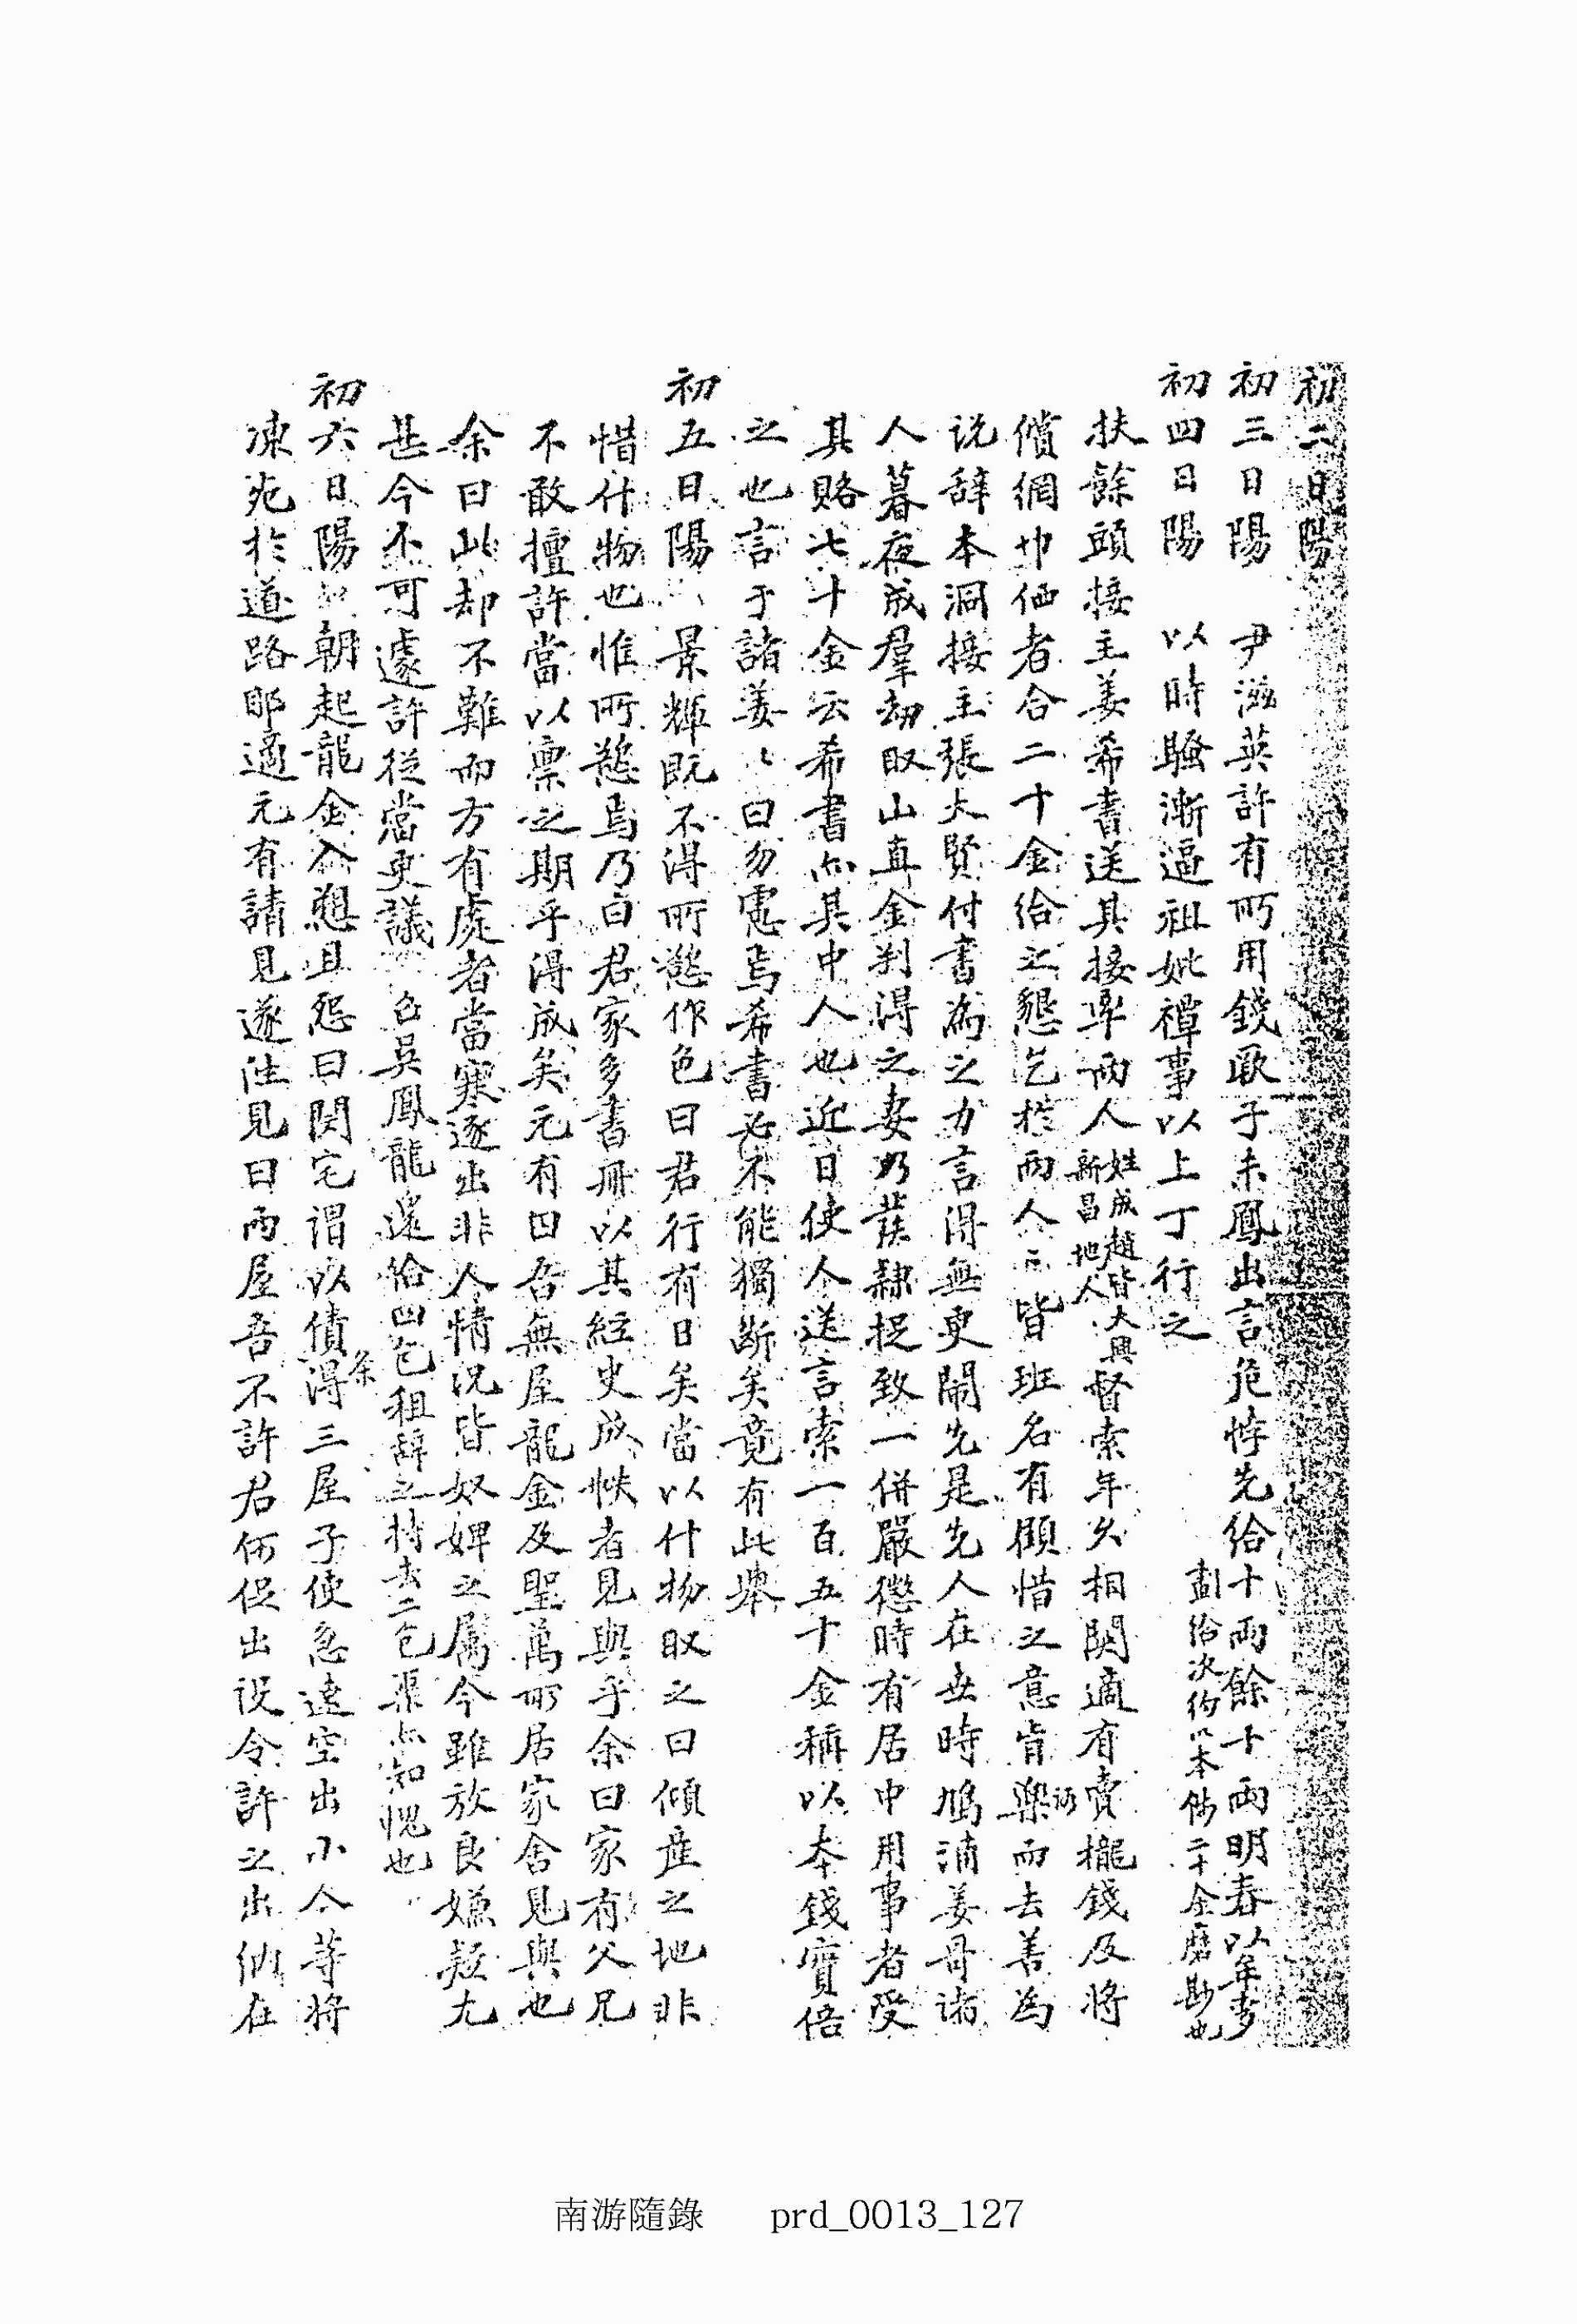 初二日陽
初三日陽 尹滋英許有所用錢歐子未鳳出言危悖先給十兩餘十兩明春以年麥
劃給次約以本價二十金磨勘也
初四日陽 以時騷漸逼祖妣禫事以上丁行之
扶餘頭接主姜希書送其接率兩人姓成趙皆大興新昌地人督索年久相関適有賣櫳錢及將
償網巾価者合二十金給之懇乞於兩人二皆班名有顧惜之意肯樂諾而去善爲
说辭本洞接主張大賢付書爲之力言得無更鬧先是先人在世時鳩浦姜哥諸
人暮夜成羣劫取山直金判得之妻乃蔟隸捉致一併嚴懲時有居中用事者受
其賂七十金云希書亦其中人也近日使人送言索一百五十金稱以本錢實倍
之也言于諸姜〻曰勿慮焉希書必不能獨斷矣竟有此擧
初五日陽 景輝既不得所慾作色曰君行有日矣當以什物取之曰傾產之地非
惜什物也惟所慾焉乃曰君家多書冊以其經史成帙者見與乎余曰家有父兄
不敢擅許當以稟之期乎得成矣元有曰吾無屋龍金及聖萬所居家舍見與也
余曰此却不難而方有處者當寒逐出非人情況皆奴婢之屬今雖放良嫌疑尤
甚今不可遽許從當更議 召吳鳳龍還給四包租辭之持去二包渠亦知愧也
初六日陽 朝起龍金入懇且怨曰閔宅謂以債条得三屋子使急速空出小人等將
凍死於道路耶適元有請見遂往見曰兩屋吾不許君何促出设令許之出伱在
南游隨錄 prd_0013_127